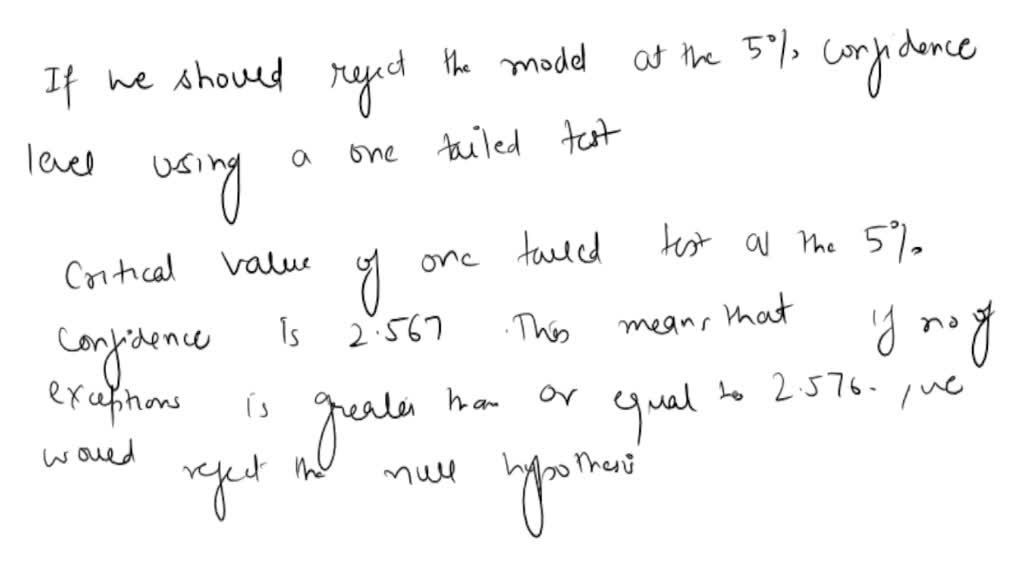 If we should reject the model at the 5% confidence
level using a one tailed test
Critical value of one tailed test at the 5%
confidence is 2.567. This means that if no of
exceptions is greater than or equal to 2.576., we
would reject the null hypothesis